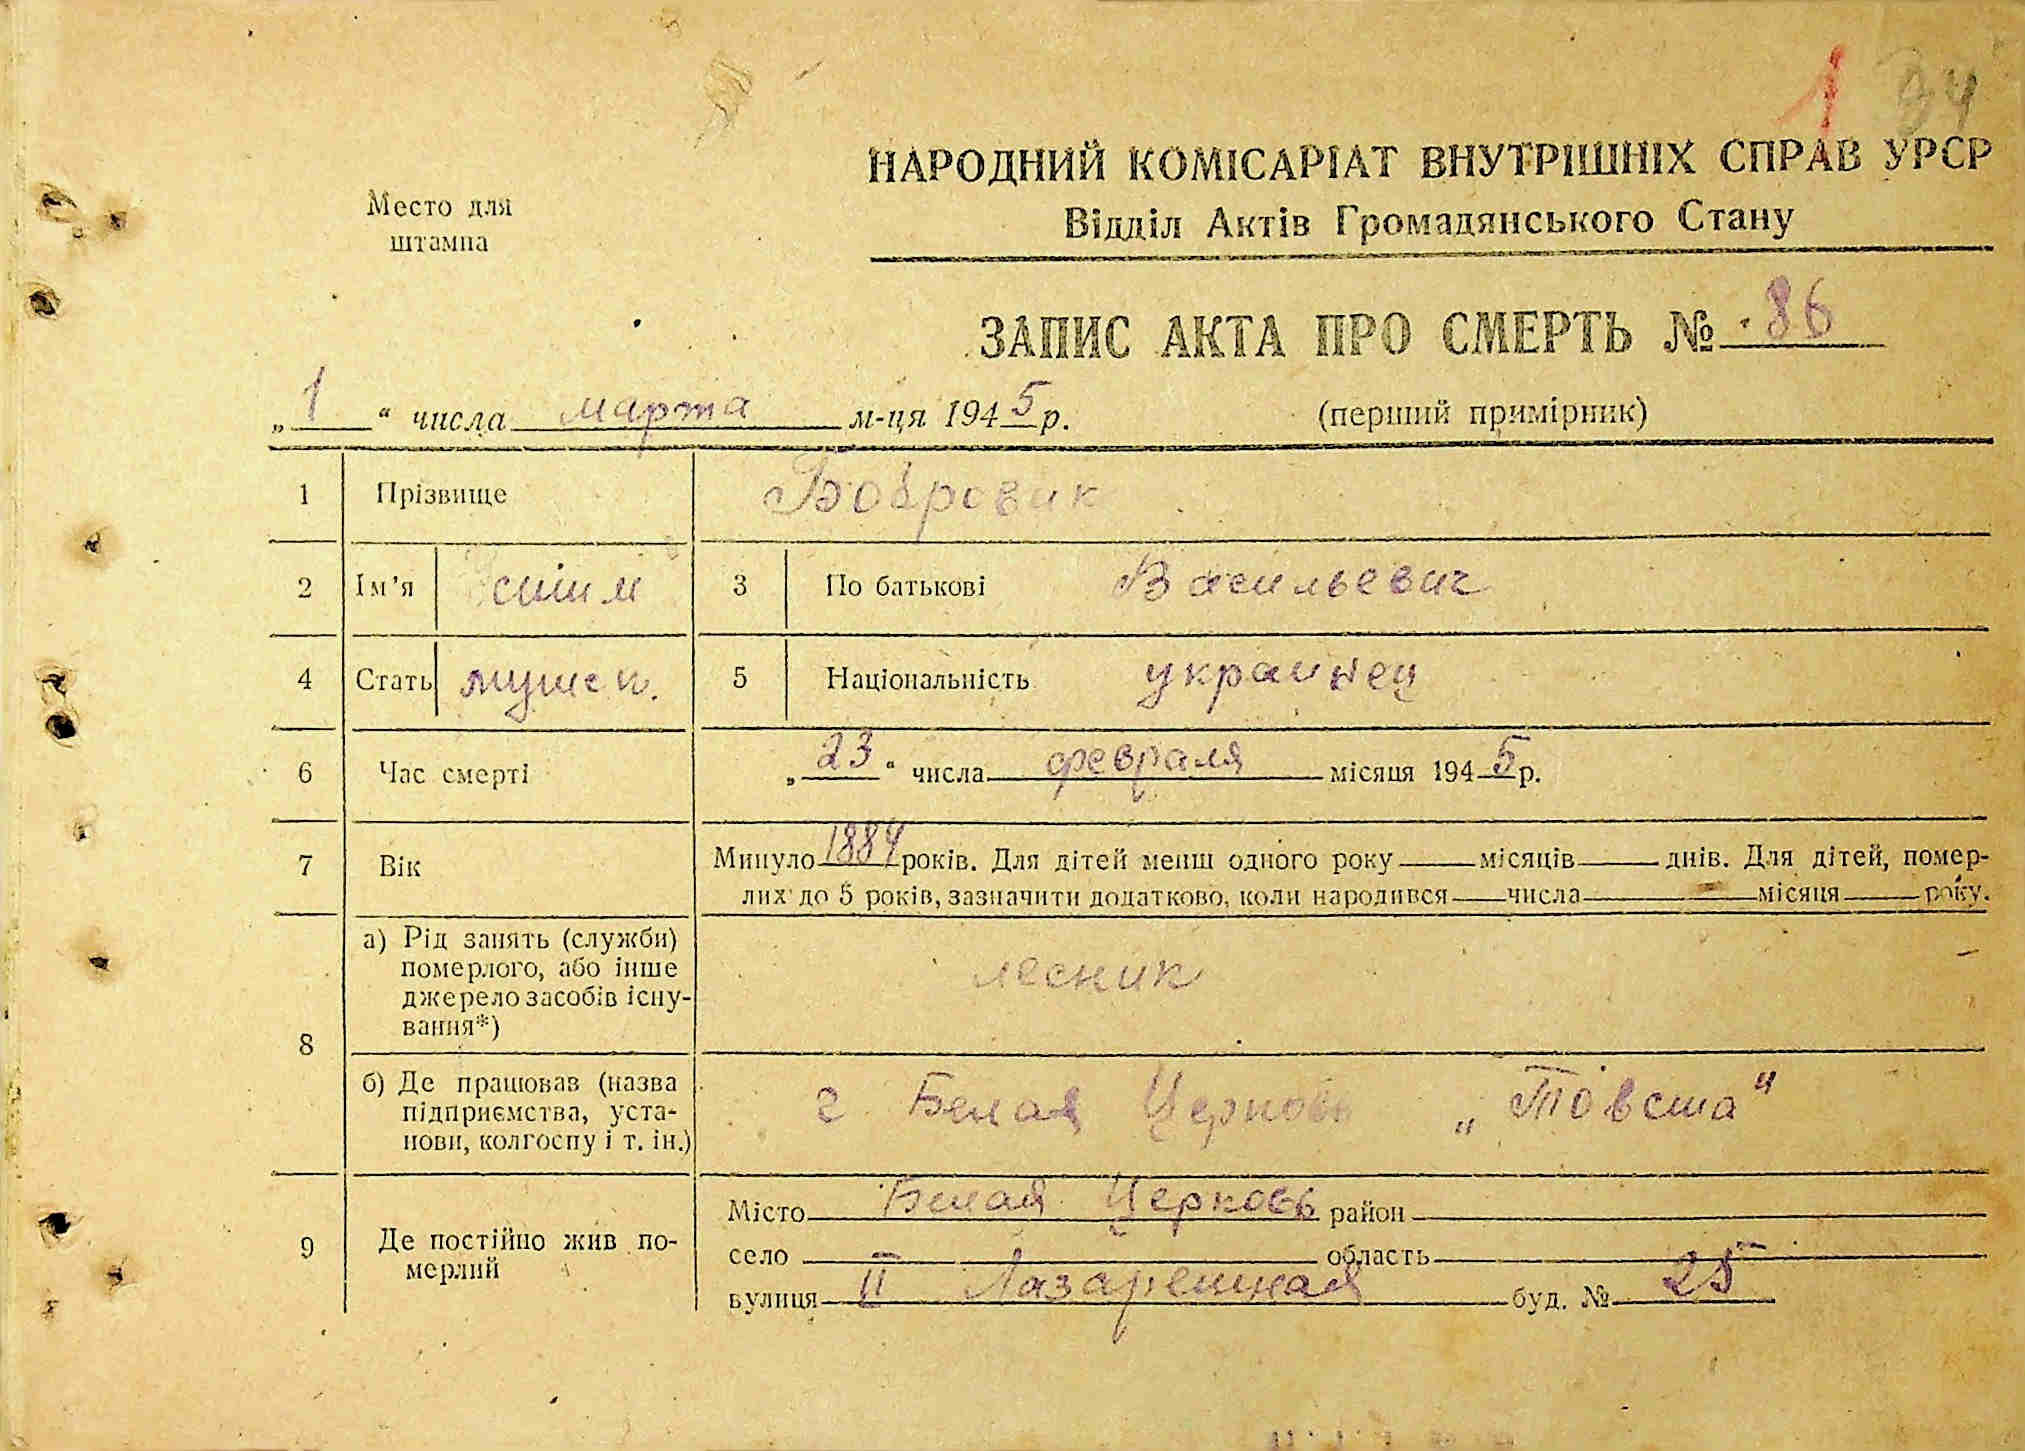 1 94
НАРОДНИЙ КОМІСАРІАТ ВНУТРІШНІХ СПРАВ УРСР
Відділ Актів Громадянського Стану
Место для
штампа
ЗАПИС АКТА ПРО СМЕРТЬ № 86
„1“ числа марта м-ця 1945 р.
(перший примірник)
1 Прізвище Бобровик
2 Ім’я 3 По батькові Васильевич
4 Стать мужск. 5 Національність украинец
6 Час смерті „23“ числа февраля місяця 1945 р.
7 Вік Минуло 1884 років. Для дітей менш одного року місяців днів. Для дітей, помер-
лих до 5 років, зазначити додатково, коли народився числа місяця року.
8 а) Рід занять (служби)
померлого, або інше
джерело засобів існу-
вання*)
лесник
б) Де працював (назва
підприємства, уста-
нови, колгоспу і т. ін.)
г Белая Церковь „Товста“
9 Де постійно жив по-
мерлий
Місто Белая Церковь район
село область
вулиця II буд. № 25